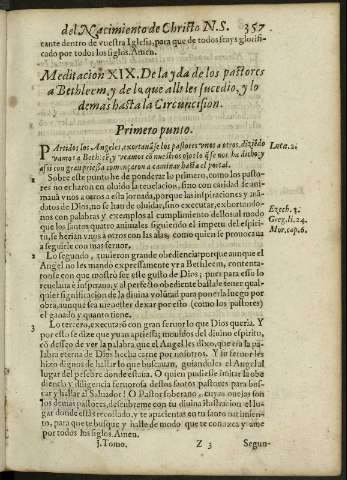 del Nacimiento de Christo N.S. 357
cante dentro de vuestra Iglesia, para que de todos seays glorifi-
cado por todos los siglos. Amen.
Meditacion XIX. De la yda de los pastores
a Bethleem, y de lo que alli les sucedio, y lo
demas hasta la Circuncision.
Primero punto.
PArtidos los Angeles, exortauãse los pastores vnos a otros, diziẽdo
vamos a Bethleẽ, y veamos cõ nuestros ojos lo q̃ se nos ha dicho, y
assi con gran priessa començaron a caminar hasta el portal.
Luca. 2.
2 Sobre este punto he de ponderar lo primero, como los pasto-
res no echaron en oluido la reuelacion, sino con caridad se ani-
mauã vnos a otros a esta jornada, porque las inspiraciones y mã-
datos de Dios, no se han de oluidar, sino executar, exhortando-
nos con palabras y exemplos al cumplimiento dellos al modo
que los santos quatro animales siguiendo el impetu del espiri-
tu, se herian vnos a otros con las alas, como quien se prouocaua
a seguirle con mas feruor.
Ezech. 3.
Greg. li. 24.
Mor. cap. 6.
2 Lo segundo, tuuieron grande obediencia: porque aunque el
Angel no les mandò expressamente yr a Bethleem, contenta-
ronse con que nuestro ser este gusto de Dios; pues para esto lo
reuelaua è inspiraua, y al perfecto obediente bastale tener qual-
quier significacion de la diuina volũtad para ponerla luego por
obra, aunque sea menester dexar por esto (como los pastores)
el ganado y quanto tiene.
3 Lo tercero, executarõ con gran feruor lo que Dios queria. Y
por esso dize que yuan apriessa, mouidos del diuino espiritu,
cõ desseo de ver la palabra que el Angel les dixo, que era la pa-
labra eterna de Dios hecha carne por nosotros. Y su feruor les
hizo dignos de hallar lo que buscauan, guiandoles el Angel al
lugar del pesebre donde estaua. O quien pudiesse imitar la obe
diencia y diligencia feruorosa destos santos pastores para bus-
car y hallar al Saluador! O Pastor soberano, cuyas ouejas son
los demas pastores, descubreme con tu diuina ilustracion el lu-
gar donde estàs recostado, y te apacientas en tu santo nacimien-
to, para que te busque y halle de modo que te conozca y ame
por todos los siglos. Amen.
j. Tomo. Z 3 Segun-